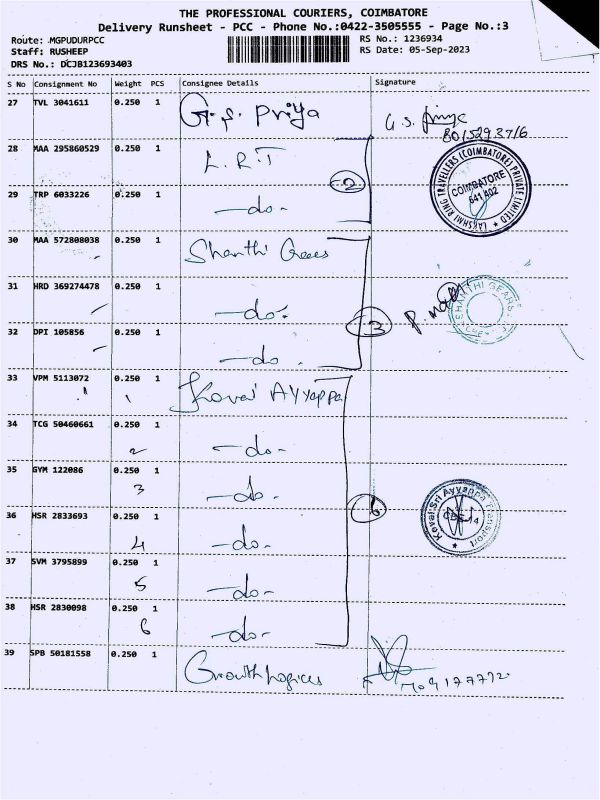 THE PROFESSIONAL COURIERS, COIMBATORE
Delivery Runsheet - PCC - Phone No.:0422-3505555 - Page No.:3
Route: .MGPUDURPCC
RS No.: 1236934
Staff: RUSHEEP
RS Date: 05-Sep-2023
DRS No.: DCJB123693403
S No Consignment No Weight PCS Consignee Details Signature
27 TVL 3041611 0.250 1 G.S. Priya G.S. Priya
8015293716
28 MAA 295860529 0.250 1 L.R.T
2
LAKSHMI RING TRAVELLERS (COIMBATORE) PRIVATE LIMITED
COIMBATORE
641 402
29 TRP 6033226 0.250 1 -do-
30 MAA 572808038 0.250 1 Shanthi Gears
31 HRD 369274478 0.250 1 -do-
3
SHANTHI GEARS
32 DPI 105856 0.250 1 -do-
33 VPM 5113072 0.250 1 Kovai Ayyappa
1
34 TCG 50460661 0.250 1 -do-
2
35 GYM 122086 0.250 1 -do-
3
6
Kovai Sri Ayyappa Transport
CBE-14
36 HSR 2833693 0.250 1 -do-
4
37 SVM 3795899 0.250 1 -do-
5
38 HSR 2830098 0.250 1 -do-
6
39 SPB 50181558 0.250 1 Growth Logices